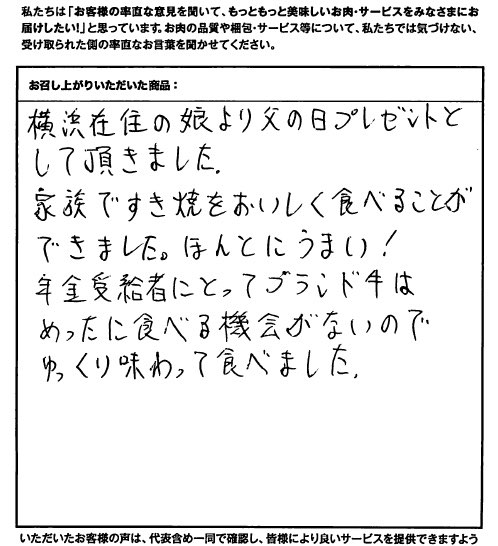 私たちは「お客様の率直な意見を聞いて、もっともっと美味しいお肉・サービスをみなさまにお
届けしたい!」と思っています。お肉の品質や梱包・サービス等について、私たちでは気づけない、
受け取られた側の率直なお言葉を聞かせてください。
お召し上がりいただいた商品：
横浜在住の娘より父の日プレゼントと
して頂きました.
家族ですき焼をおいしく食べることが
できました。ほんとにうまい!
年金受給者にとってブランド牛は
めったに食べる機会がないので
ゆっくり味わって食べました.
いただいたお客様の声は、代表含め一同で確認し、皆様により良いサービスを提供できますよう